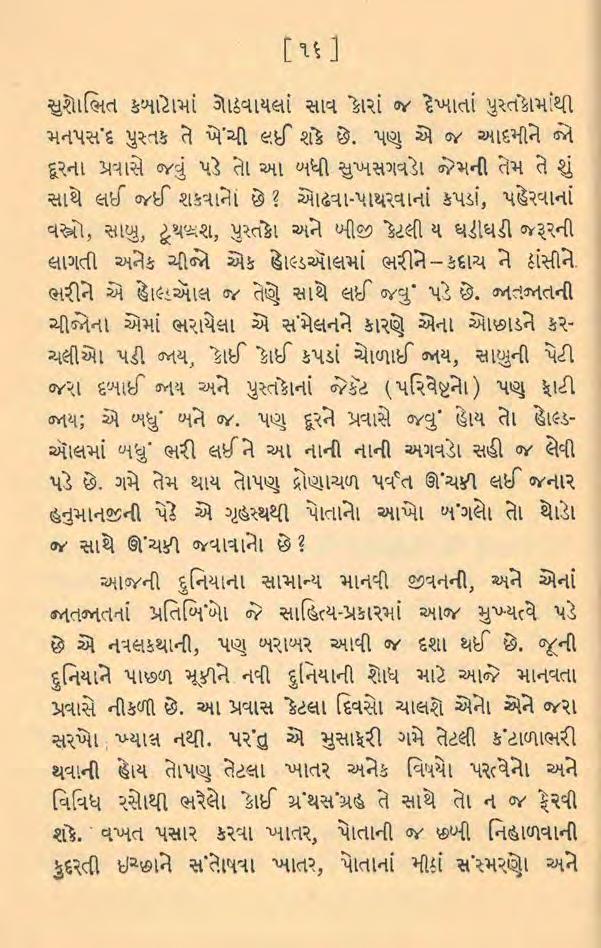 [ ૧૬ ]
સુશોભિત કબાટોમાં ગોઠવાયલાં સાવ કોરાં જ દેખાતાં પુસ્તકોમાંથી
મનપસંદ પુસ્તક તે ખેંચી લઈ શકે છે. પણ એ જ આદમીને જો
દૂરના પ્રવાસે જવું પડે તો આ બધી સુખસગવડો જેમની તેમ તે શું
સાથે લઈ જઈ શકવાનો છે? ઓઢવા-પાથરવાનાં કપડાં, પહેરવાનાં
વસ્ત્રો, સાબુ, ટૂથબ્રશ, પુસ્તકો અને બીજી કેટલી ય ઘડીઘડી જરૂરની
લાગતી અનેક ચીજો એક હોલ્ડઑલમાં ભરીને–કદાચ ને ઠાંસીને
ભરીને એ હોલ્ડઑલ જ તેણે સાથે લઈ જવું પડે છે. જાતજાતની
ચીજોના એમાં ભરાયેલા એ સંમેલનને કારણે એના ઓછાડને કર-
ચલીઓ પડી જાય, કોઈ કોઈ કપડાં ચોળાઈ જાય, સાબુની પેટી
જરા દબાઈ જાય અને પુસ્તકોનાં જેકૅટ (પરિવેષ્ટનો) પણ ફાટી
જાય; એ બધું બને જ. પણ દૂરને પ્રવાસે જવું હોય તો હોલ્ડ-
ઑલમાં બધું ભરી લઈને આ નાની નાની અગવડો સહી જ લેવી
પડે છે. ગમે તેમ થાય તોપણ દ્રોણાચળ પર્વત ઊંચકી લઈ જનાર
હનુમાનજીની પેઠે એ ગૃહસ્થથી પોતાનો આખો બંગલો તો થોડો
જ સાથે ઊંચકી જવાવાનો છે?
આજની દુનિયાના સામાન્ય માનવી જીવનની, અને એનાં
જાતજાતનાં પ્રતિબિંબો જે સાહિત્ય-પ્રકારમાં આજ મુખ્યત્વે પડે
છે એ નવલકથાની, પણ બરાબર આવી જ દશા થઈ છે. જૂની
દુનિયાને પાછળ મૂકીને નવી દુનિયાની શોધ માટે આજે માનવતા
પ્રવાસે નીકળી છે. આ પ્રવાસ કેટલા દિવસો ચાલશે એનો એને જરા
સરખો ખ્યાલ નથી. પરંતુ એ મુસાફરી ગમે તેટલી કંટાળાભરી
થવાની હોય તોપણ તેટલા ખાતર અનેક વિષયો પરત્વેનો અને
વિવિધ રસોથી ભરેલો કોઈ ગ્રંથસંગ્રહ તે સાથે તો ન જ ફેરવી
શકે. વખત પસાર કરવા ખાતર, પોતાની જ છબી નિહાળવાની
કુદરતી ઇચ્છાને સંતોષવા ખાતર, પોતાનાં મીઠાં સંસ્મરણો અને